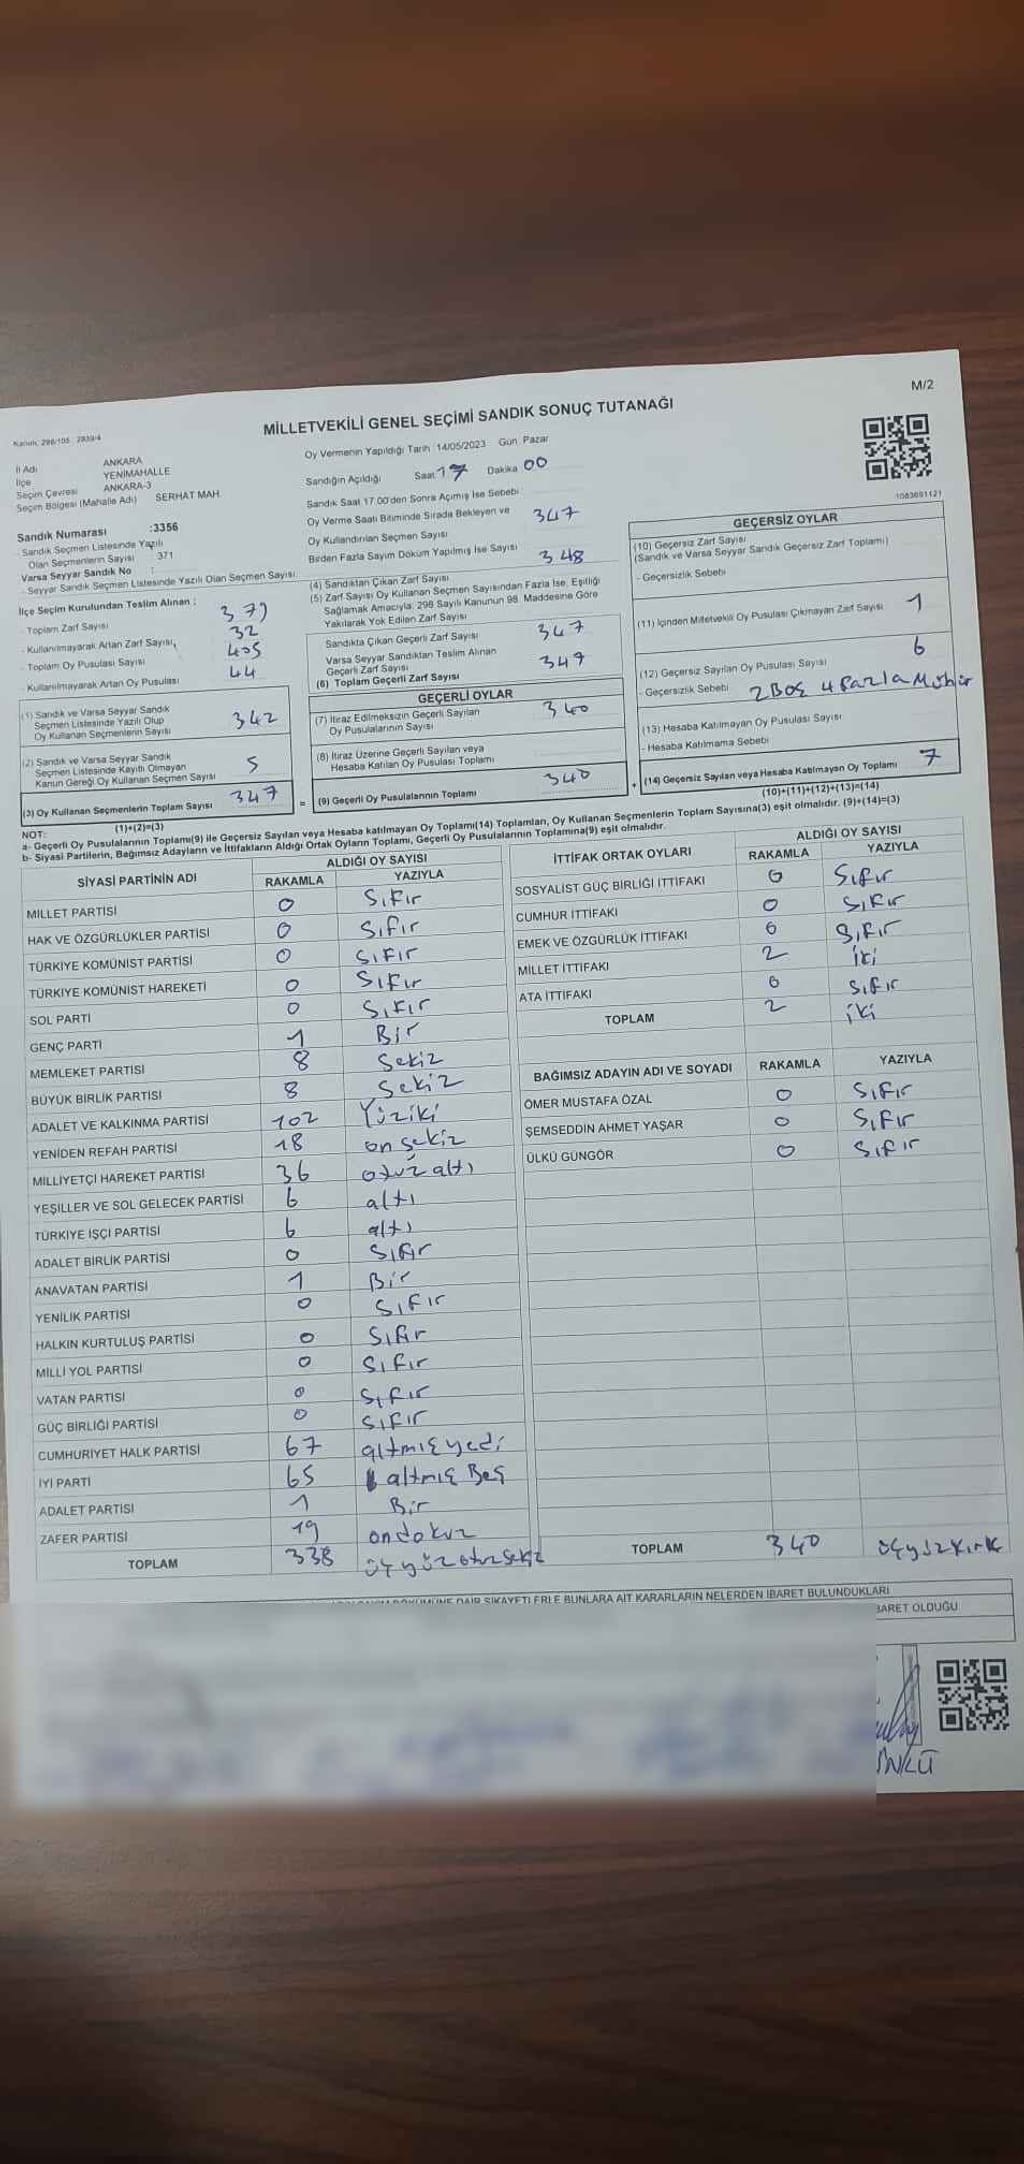 M/2
MİLLETVEKİLİ GENEL SEÇİMİ SANDIK SONUÇ TUTANAĞI
Kanun: 298/105 2839/4
İl Adı ANKARA
İlçe YENİMAHALLE
Seçim Çevresi ANKARA-3
Seçim Bölgesi (Mahalle Adı) SERHAT MAH.
Sandık Numarası :3356
- Sandık Seçmen Listesinde Yazılı
Olan Seçmenlerin Sayısı 371
Varsa Seyyar Sandık No :
- Seyyar Sandık Seçmen Listesinde Yazılı Olan Seçmen Sayısı:
İlçe Seçim Kurulundan Teslim Alınan :
- Toplam Zarf Sayısı 379
- Kullanılmayarak Artan Zarf Sayısı 32
- Toplam Oy Pusulası Sayısı 405
- Kullanılmayarak Artan Oy Pusulası 44
(1) Sandık ve Varsa Seyyar Sandık
Seçmen Listesinde Yazılı Olup
Oy Kullanan Seçmenlerin Sayısı 342
(2) Sandık ve Varsa Seyyar Sandık
Seçmen Listesinde Kayıtlı Olmayan
Kanun Gereği Oy Kullanan Seçmen Sayısı 5
(3) Oy Kullanan Seçmenlerin Toplam Sayısı 347
(1)+(2)=(3)
Oy Vermenin Yapıldığı Tarih 14/05/2023 Gün Pazar
Sandığın Açıldığı Saat 17 Dakika 00
Sandık Saat 17.00'den Sonra Açılmış İse Sebebi
Oy Verme Saati Bitiminde Sırada Bekleyen ve
Oy Kullandırılan Seçmen Sayısı 347
Birden Fazla Sayım Döküm Yapılmış İse Sayısı
(4) Sandıktan Çıkan Zarf Sayısı 348
(5) Zarf Sayısı Oy Kullanan Seçmen Sayısından Fazla İse, Eşitliği
Sağlamak Amacıyla, 298 Sayılı Kanunun 98. Maddesine Göre
Yakılarak Yok Edilen Zarf Sayısı
Sandıkta Çıkan Geçerli Zarf Sayısı 347
Varsa Seyyar Sandıktan Teslim Alınan
Geçerli Zarf Sayısı
(6) Toplam Geçerli Zarf Sayısı 347
GEÇERLİ OYLAR
(7) İtiraz Edilmeksizin Geçerli Sayılan
Oy Pusulalarının Sayısı 340
(8) İtiraz Üzerine Geçerli Sayılan veya
Hesaba Katılan Oy Pusulası Toplamı
= (9) Geçerli Oy Pusulalarının Toplamı 340
1083691121
GEÇERSİZ OYLAR
(10) Geçersiz Zarf Sayısı
(Sandık ve Varsa Seyyar Sandık Geçersiz Zarf Toplamı)
- Geçersizlik Sebebi
(11) İçinden Milletvekili Oy Pusulası Çıkmayan Zarf Sayısı 1
(12) Geçersiz Sayılan Oy Pusulası Sayısı 6
- Geçersizlik Sebebi 2 Boş 4 fazla Mühür
(13) Hesaba Katılmayan Oy Pusulası Sayısı
- Hesaba Katılmama Sebebi
+ (14) Geçersiz Sayılan veya Hesaba Katılmayan Oy Toplamı 7
(10)+(11)+(12)+(13)=(14)
NOT:
a- Geçerli Oy Pusulalarının Toplamı(9) ile Geçersiz Sayılan veya Hesaba katılmayan Oy Toplamı(14) Toplamları, Oy Kullanan Seçmenlerin Toplam Sayısına(3) eşit olmalıdır. (9)+(14)=(3)
b- Siyasi Partilerin, Bağımsız Adayların ve İttifakların Aldığı Ortak Oyların Toplamı, Geçerli Oy Pusulalarının Toplamına(9) eşit olmalıdır.
SİYASİ PARTİNİN ADI ALDIĞI OY SAYISI
RAKAMLA YAZIYLA
MİLLET PARTİSİ 0 Sıfır
HAK VE ÖZGÜRLÜKLER PARTİSİ 0 Sıfır
TÜRKİYE KOMÜNİST PARTİSİ 0 Sıfır
TÜRKİYE KOMÜNİST HAREKETİ 0 Sıfır
SOL PARTİ 0 Sıfır
GENÇ PARTİ 1 Bir
MEMLEKET PARTİSİ 8 Sekiz
BÜYÜK BİRLİK PARTİSİ 8 Sekiz
ADALET VE KALKINMA PARTİSİ 102 Yüziki
YENİDEN REFAH PARTİSİ 18 on sekiz
MİLLİYETÇİ HAREKET PARTİSİ 36 otuz altı
YEŞİLLER VE SOL GELECEK PARTİSİ 6 altı
TÜRKİYE İŞÇİ PARTİSİ 6 altı
ADALET BİRLİK PARTİSİ 0 Sıfır
ANAVATAN PARTİSİ 1 Bir
YENİLİK PARTİSİ 0 Sıfır
HALKIN KURTULUŞ PARTİSİ 0 Sıfır
MİLLİ YOL PARTİSİ 0 Sıfır
VATAN PARTİSİ 0 Sıfır
GÜÇ BİRLİĞİ PARTİSİ 0 Sıfır
CUMHURİYET HALK PARTİSİ 67 altmış yedi
İYİ PARTİ 65 altmış Beş
ADALET PARTİSİ 1 Bir
ZAFER PARTİSİ 19 ondokuz
TOPLAM 338 üç yüz otuz sekiz
İTTİFAK ORTAK OYLARI ALDIĞI OY SAYISI
RAKAMLA YAZIYLA
SOSYALİST GÜÇ BİRLİĞİ İTTİFAKI 0 Sıfır
CUMHUR İTTİFAKI 0 Sıfır
EMEK VE ÖZGÜRLÜK İTTİFAKI 0 Sıfır
MİLLET İTTİFAKI 2 iki
ATA İTTİFAKI 0 Sıfır
TOPLAM 2 iki
BAĞIMSIZ ADAYIN ADI VE SOYADI RAKAMLA YAZIYLA
ÖMER MUSTAFA ÖZAL 0 Sıfır
ŞEMSEDDİN AHMET YAŞAR 0 Sıfır
ÜLKÜ GÜNGÖR 0 Sıfır
TOPLAM 340 üçyüzkırk
DAİR ŞİKAYETLERLE BUNLARA AİT KARARLARIN NELERDEN İBARET BULUNDUKLARI
BARET OLDUĞU